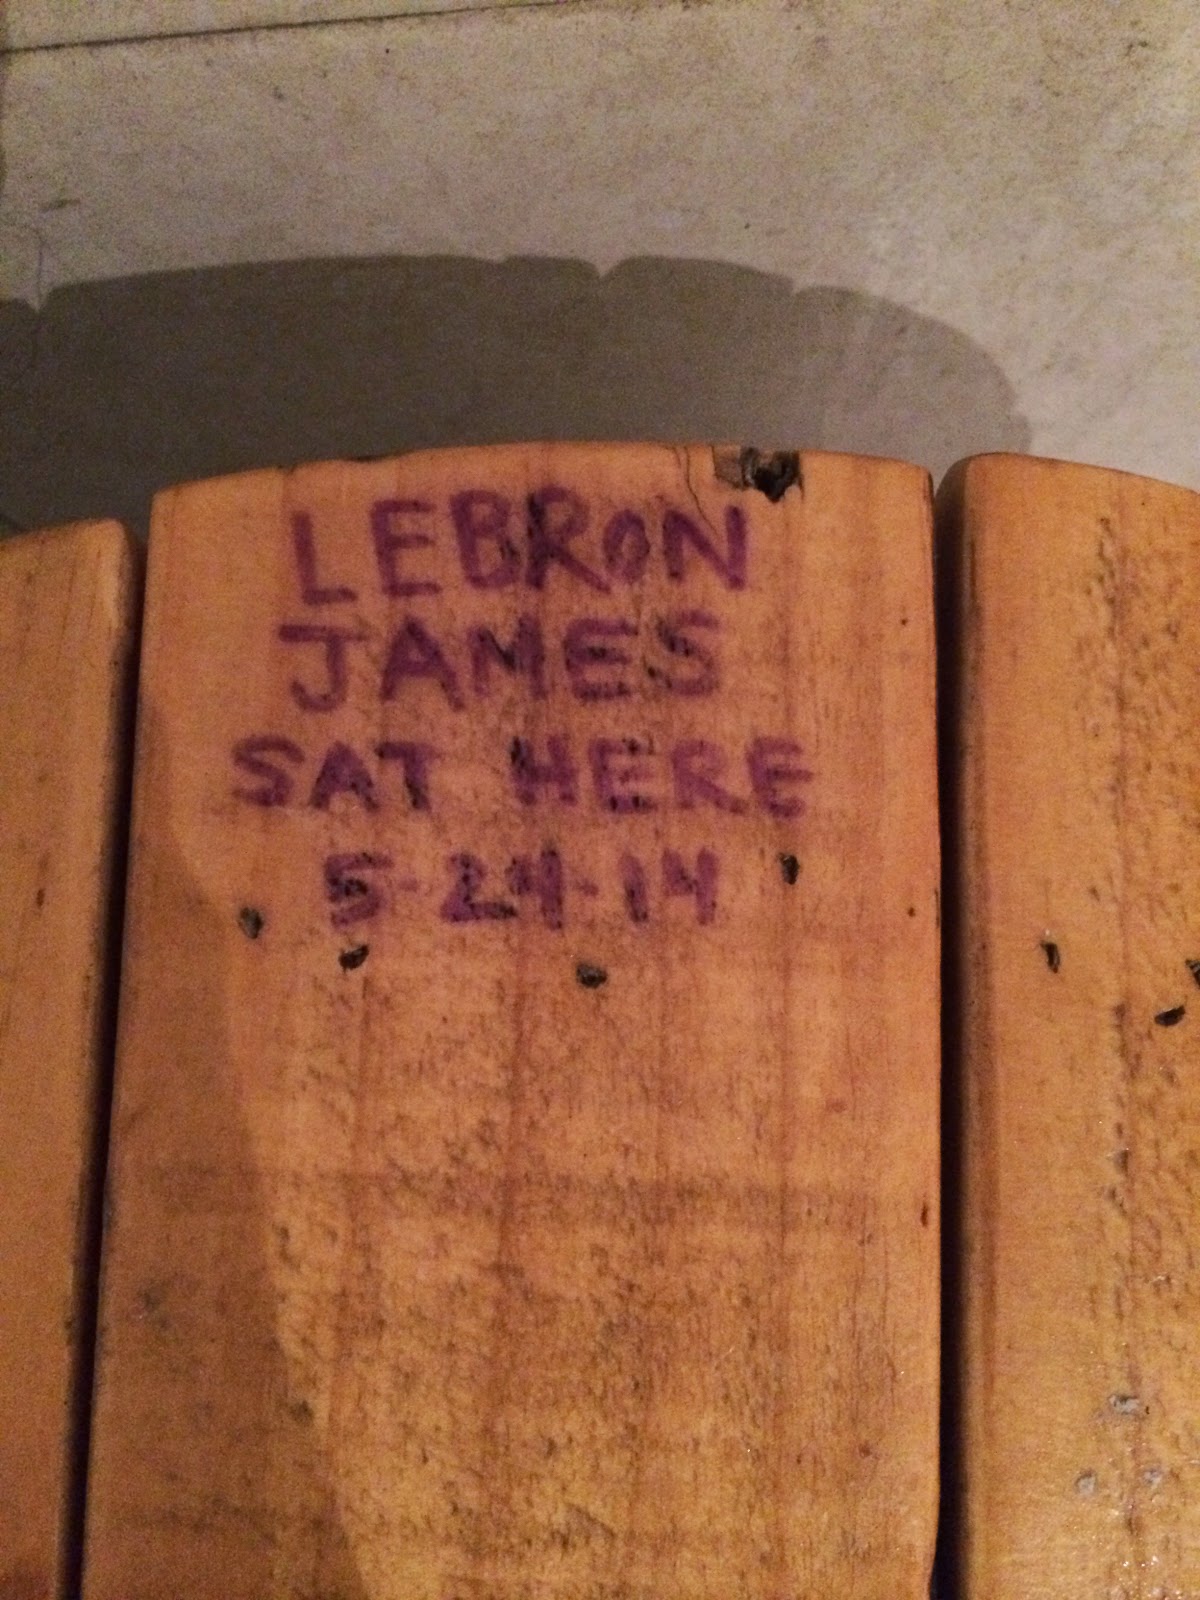 LEBRON
JAMES
SAT HERE
5-24-14